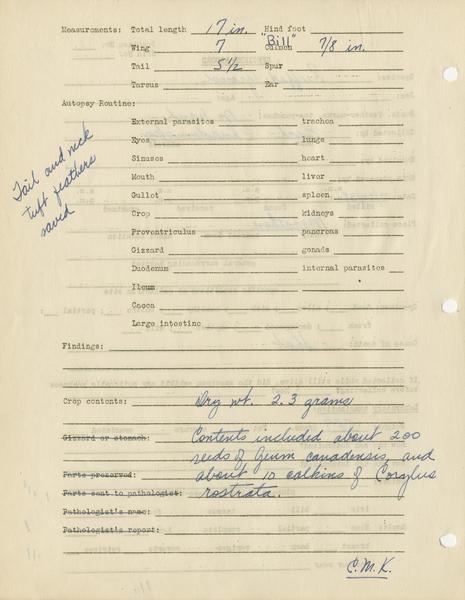 Measurements: Total length 17 in. Hind foot
Wing 7 "Bill" Culmen 7/8 in.
Tail 5 1/2 Spur
Tarsus Ear
Autopsy Routine:
External parasites trachea
Eyes lungs
Sinuses heart
Mouth liver
Gullet spleen
Crop kidneys
Proventriculus pancreas
Gizzard gonads
Duodenum internal parasites
Ileum
Caeca
Large intestine
Tail and neck
tuft feathers
saved
Findings:
Crop contents: Dry wt. 2.3 grams
Gizzard or stomach: Contents included about 200
seeds of Geum canadensis, and
Parts preserved: about 10 catkins of Corylus
Parts sent to pathologist: rostrata.
Pathologist's name:
Pathologist's report:
C.M.K.